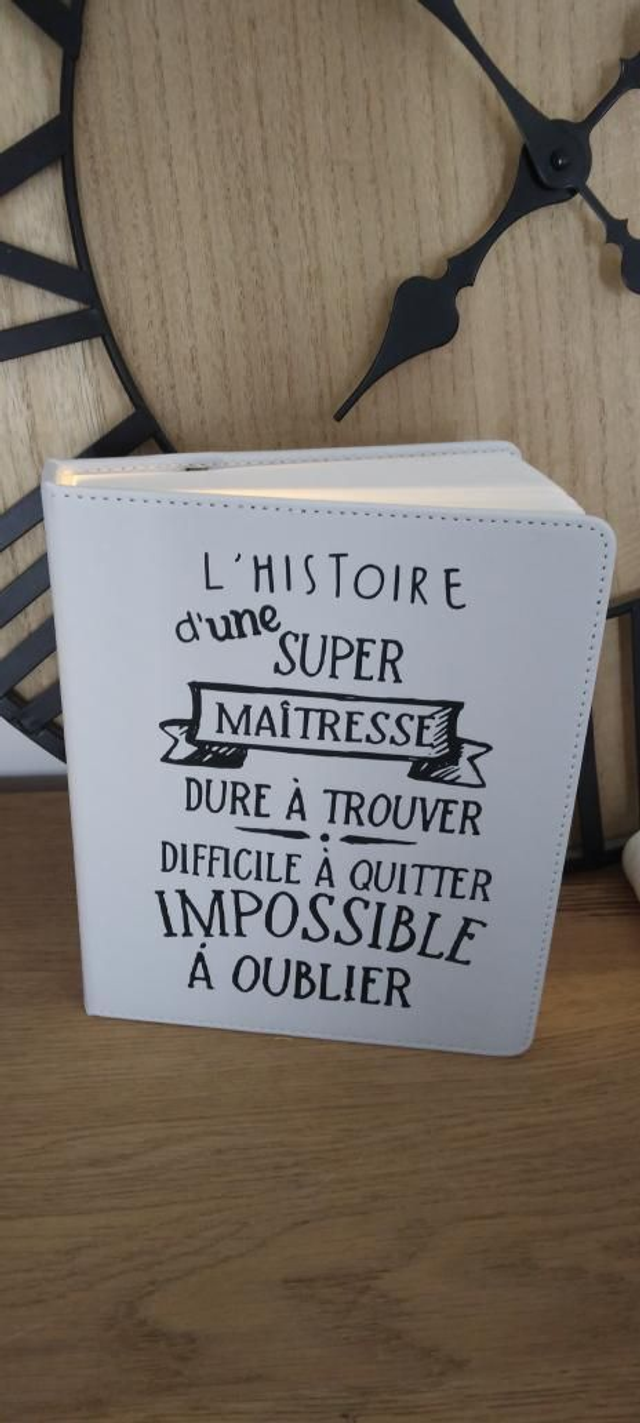 L'HISTOIRE
d'une
SUPER
MAÎTRESSE
DURE À TROUVER
DIFFICILE À QUITTER
IMPOSSIBLE
Á OUBLIER